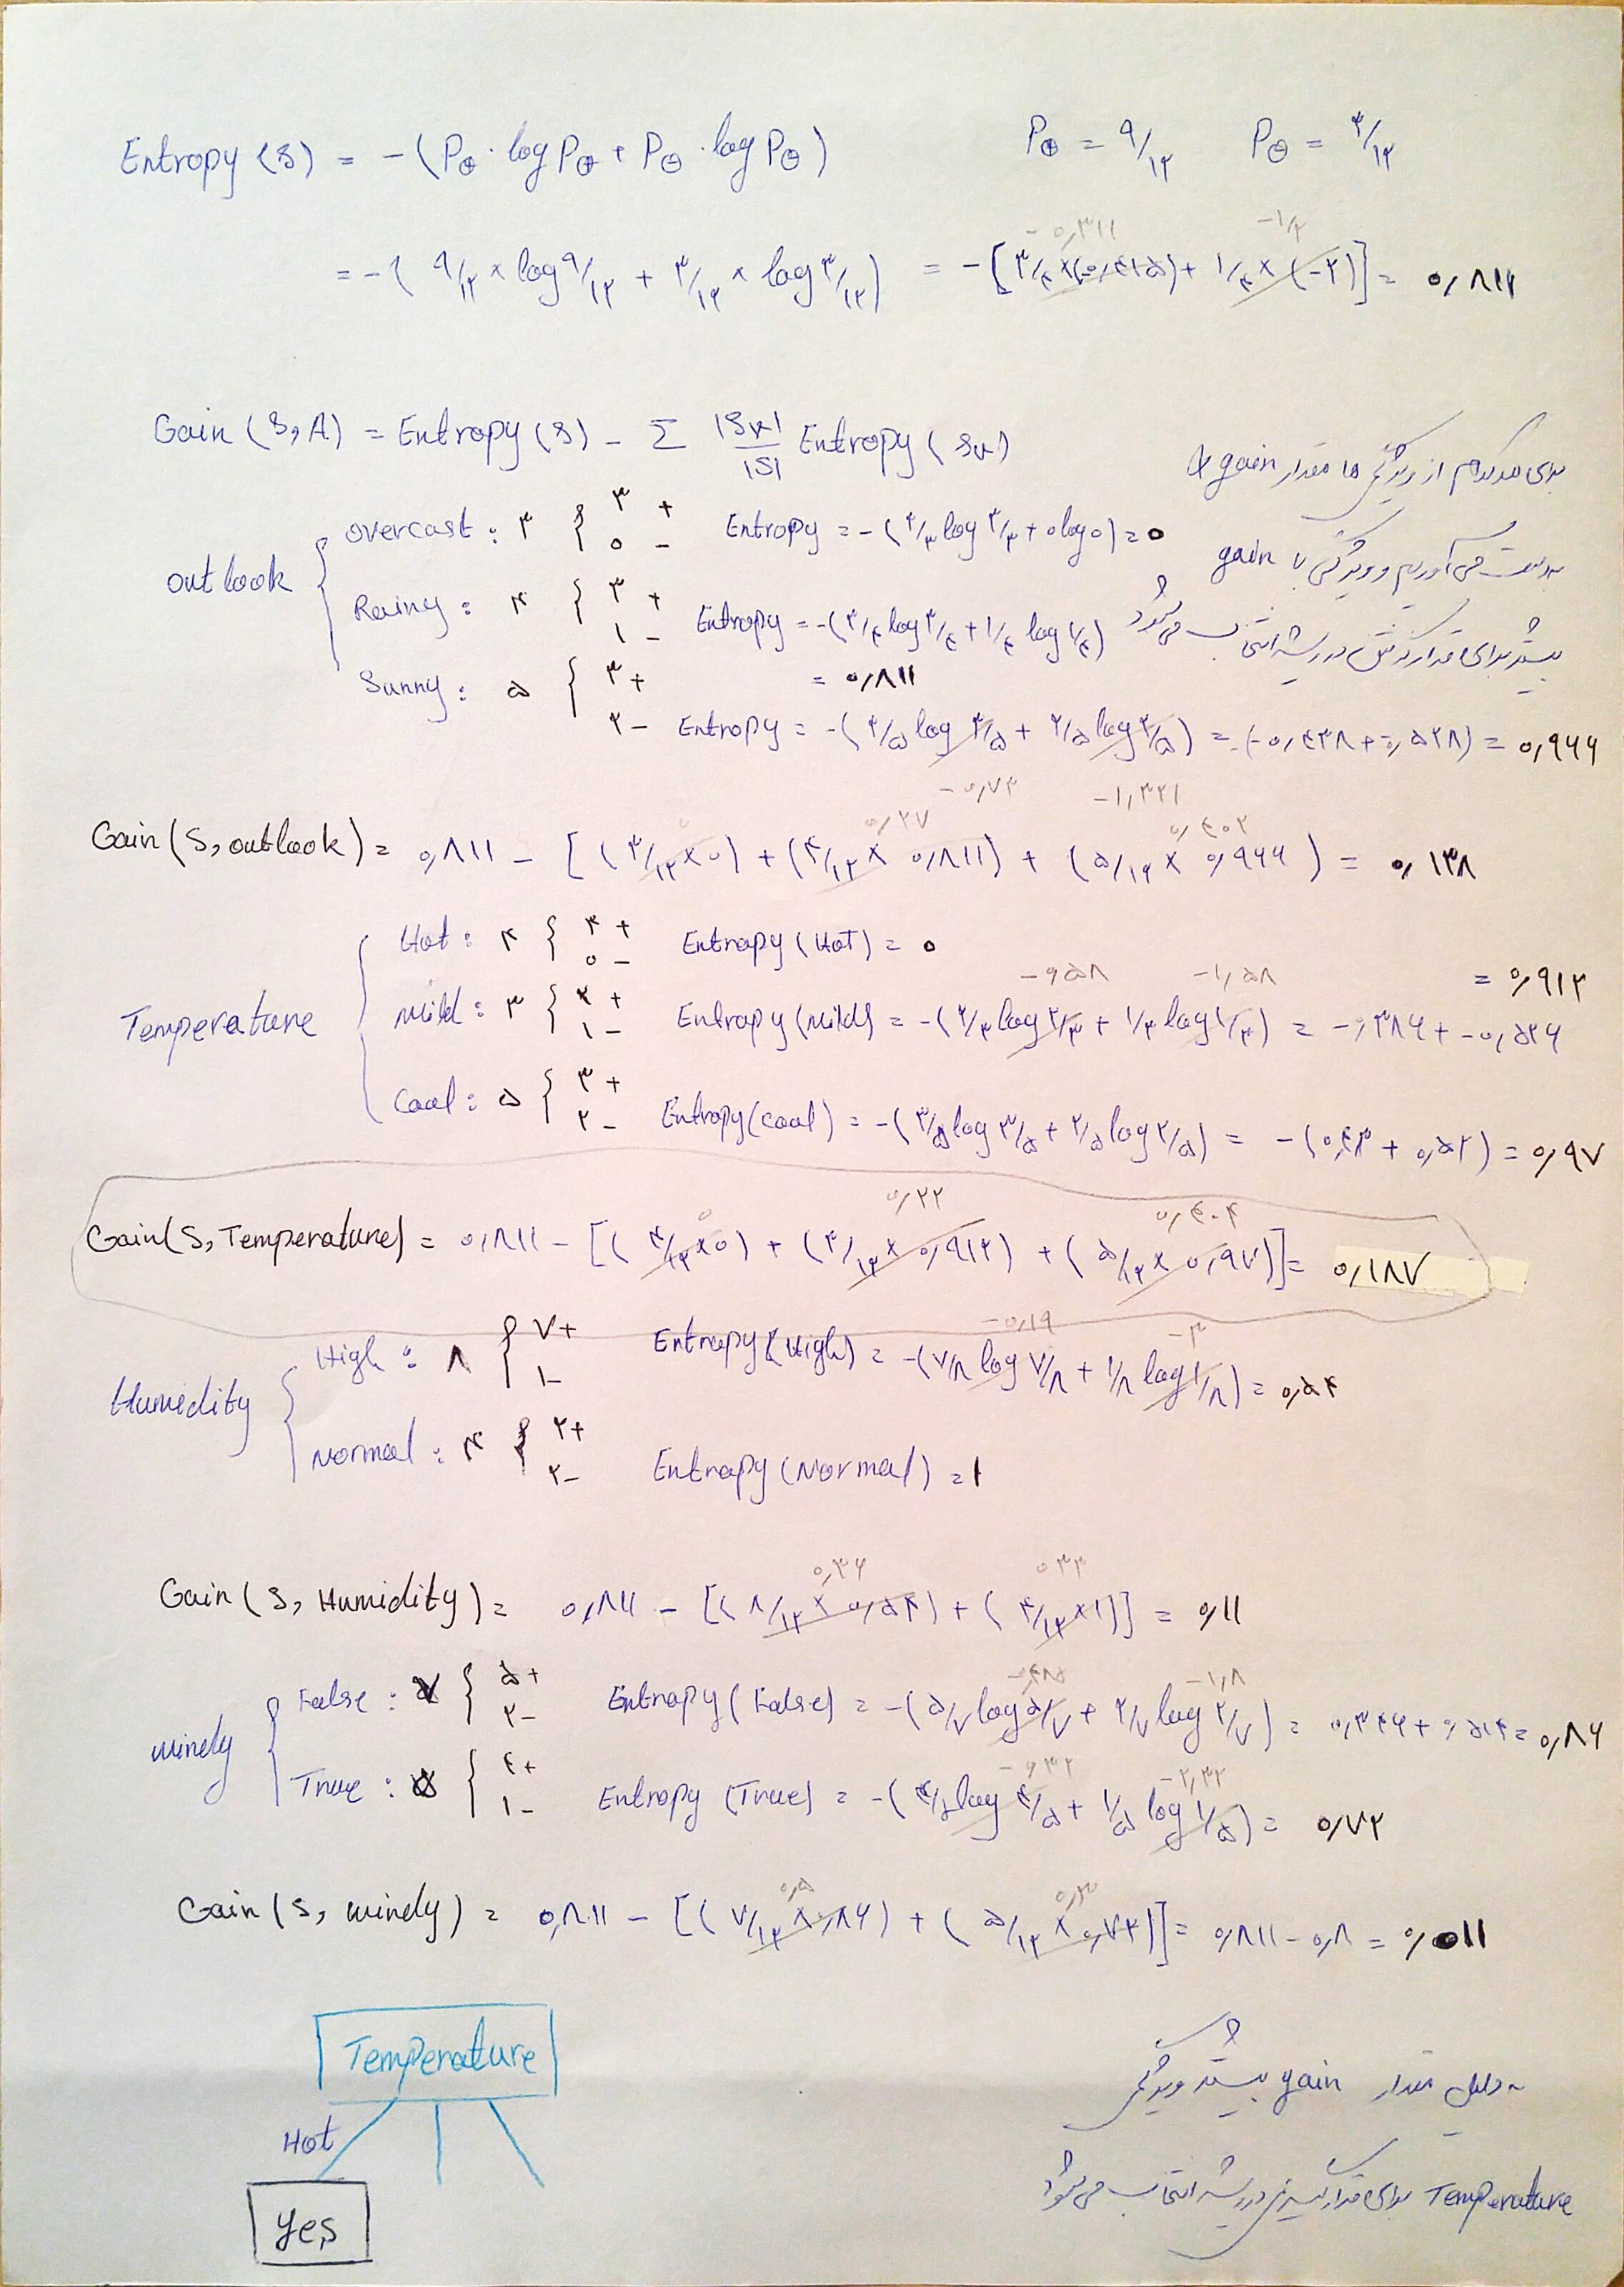 Entropy (S) = -(P⊕ · log P⊕ + P⊖ · log P⊖) P⊕ = ۹/۱۲ P⊖ = ۳/۱۲
-۰,۳۱۱ -۱/۲
= -(۹/۱۲ × log ۹/۱۲ + ۳/۱۲ × log ۳/۱۲) = -[۳/۴ × (-۰,۴۱۵) + ۱/۴ × (-۲)] = ۰,۸۱۱
Gain (S, A) = Entropy (S) - Σ |Sv|/|S| Entropy (Sv)
برای هر کدام از ویژگی ها مقدار gain را
بدست می آوریم و ویژگی با gain
بیشتر برای قرار گرفتن در ریشه انتخاب می شود
outlook
overcast : ۳ { ۳ + ۰ - Entropy = -(۳/۳ log ۳/۳ + ۰ log ۰) = ۰
Rainy : ۴ { ۳ + ۱ - Entropy = -(۳/۴ log ۳/۴ + ۱/۴ log ۱/۴)
= ۰,۸۱۱
Sunny : ۵ { ۳ + ۲ - Entropy = -(۳/۵ log ۳/۵ + ۲/۵ log ۲/۵) = -(-۰,۴۳۸ + -۰,۵۲۸) = ۰,۹۶۶
-۰,۷۳ -۱,۳۲۱
۰ ۰,۲۷ ۰,۴۰۲
Gain (S, outlook) = ۰,۸۱۱ - [(۳/۱۲ × ۰) + (۴/۱۲ × ۰,۸۱۱) + (۵/۱۲ × ۰,۹۶۶) = ۰,۱۳۸
Temperature
Hot : ۴ { ۴ + ۰ - Entropy (Hot) = ۰
-۰,۵۸ -۱,۵۸ = ۰,۹۱۲
Mild : ۳ { ۲ + ۱ - Entropy (Mild) = -(۲/۳ log ۲/۳ + ۱/۳ log ۱/۳) = -۰,۳۸۶ + -۰,۵۲۶
Cool : ۵ { ۳ + ۲ - Entropy (cool) = -(۳/۵ log ۳/۵ + ۲/۵ log ۲/۵) = -(۰,۴۴ + ۰,۵۲) = ۰,۹۷
۰ ۰,۲۲ ۰,۴۰۴
Gain (S, Temperature) = ۰,۸۱۱ - [(۴/۱۲ × ۰) + (۳/۱۲ × ۰,۹۱۲) + (۵/۱۲ × ۰,۹۷)] = ۰,۱۸۷
Humidity
-۰,۱۹ -۳
High : ۸ { ۷ + ۱ - Entropy (High) = -(۷/۸ log ۷/۸ + ۱/۸ log ۱/۸) = ۰,۵۴
Normal : ۴ { ۲ + ۲ - Entropy (Normal) = ۱
۰,۳۶ ۰,۳۳
Gain (S, Humidity) = ۰,۸۱۱ - [(۸/۱۲ × ۰,۵۴) + (۴/۱۲ × ۱)] = ۰,۱۱
windy
-۰,۴۸۵ -۱,۸
False : ۷ { ۵ + ۲ - Entropy (False) = -(۵/۷ log ۵/۷ + ۲/۷ log ۲/۷) = ۰,۳۴۶ + ۰,۵۱۴ = ۰,۸۶
-۰,۳۲ -۲,۳۲
True : ۵ { ۴ + ۱ - Entropy (True) = -(۴/۵ log ۴/۵ + ۱/۵ log ۱/۵) = ۰,۷۲
۰,۵ ۰,۳
Gain (S, windy) = ۰,۸۱۱ - [(۷/۱۲ × ۰,۸۶) + (۵/۱۲ × ۰,۷۲)] = ۰,۸۱۱ - ۰,۸ = ۰,۰۱۱
Temperature
Hot
Yes
به دلیل مقدار gain بیشتر ویژگی
Temperature برای قرارگیری در ریشه انتخاب می شود